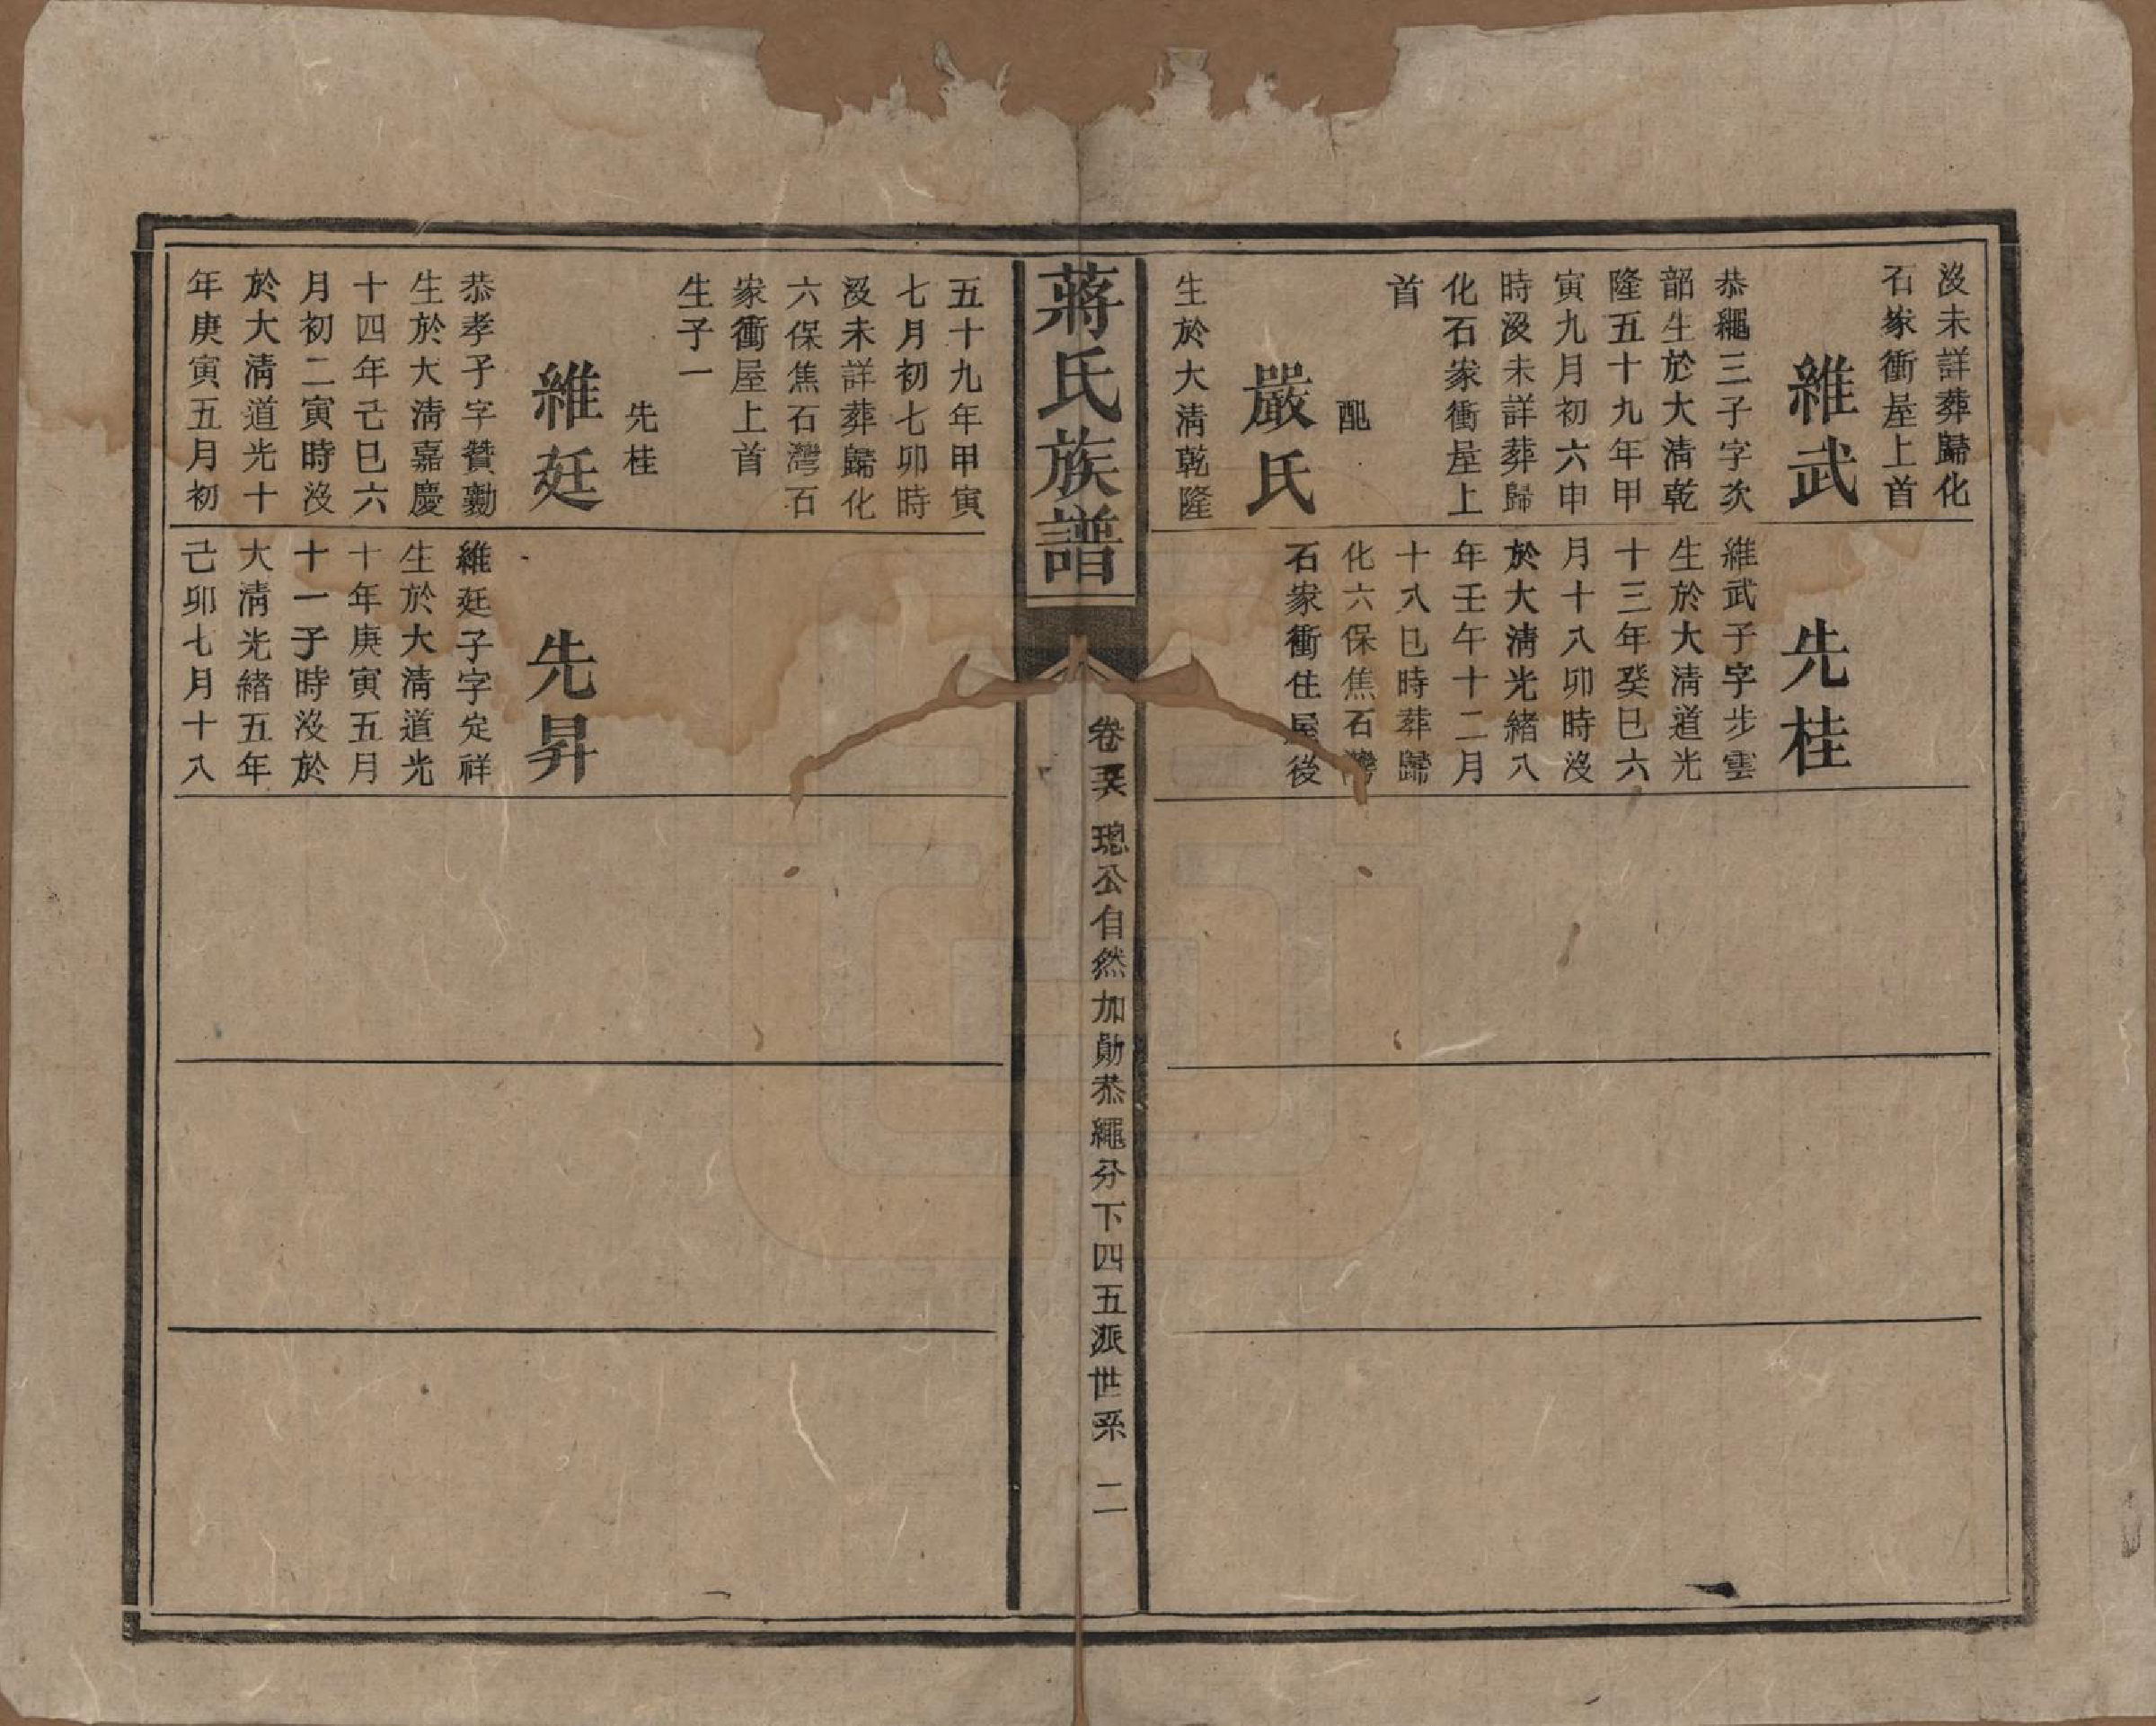 沒未詳葬歸化
石家衝屋上首
維武
恭繩三子字次
韶生於大清乾
隆五十九年甲
寅九月初六申
時沒未詳葬歸
化石家衝屋上
首
配
嚴氏
生於大清乾隆
先桂
維武子字步雲
生於大清道光
十三年癸巳六
月十八卯時沒
於大清光緒八
年壬午十二月
十八巳時葬歸
化六保焦石灣
石家衝住屋後
蔣氏族譜
卷 琨公自然加勛恭繩分下四五派世系 二
五十九年甲寅
七月初七卯時
沒未詳葬歸化
六保焦石灣石
家衝屋上首
生子一
先桂
維廷
恭孝子字贊勷
生於大淸嘉慶
十四年己巳六
月初二寅時沒
於大淸道光十
年庚寅五月初
先昇
維廷子字定祥
生於大淸道光
十年庚寅五月
十一子時沒於
大淸光緒五年
己卯七月十八